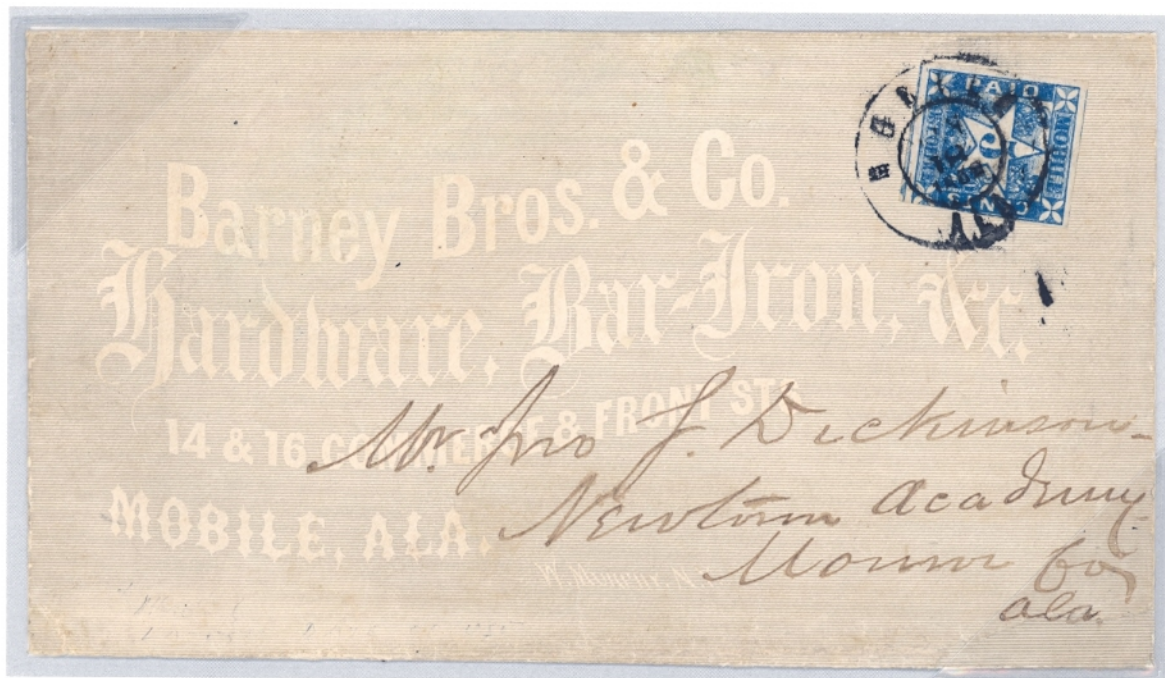 Barney Bros. & Co.
Hardware, Bar-Iron, &c.
14 & 16 COMMERCE & FRONT STS
MOBILE, ALA.
PAID
MOBILE
5
CENTS
MOBILE
Mr. Jno J. Dickinson
Newtown Academy
Monroe Co
Ala.